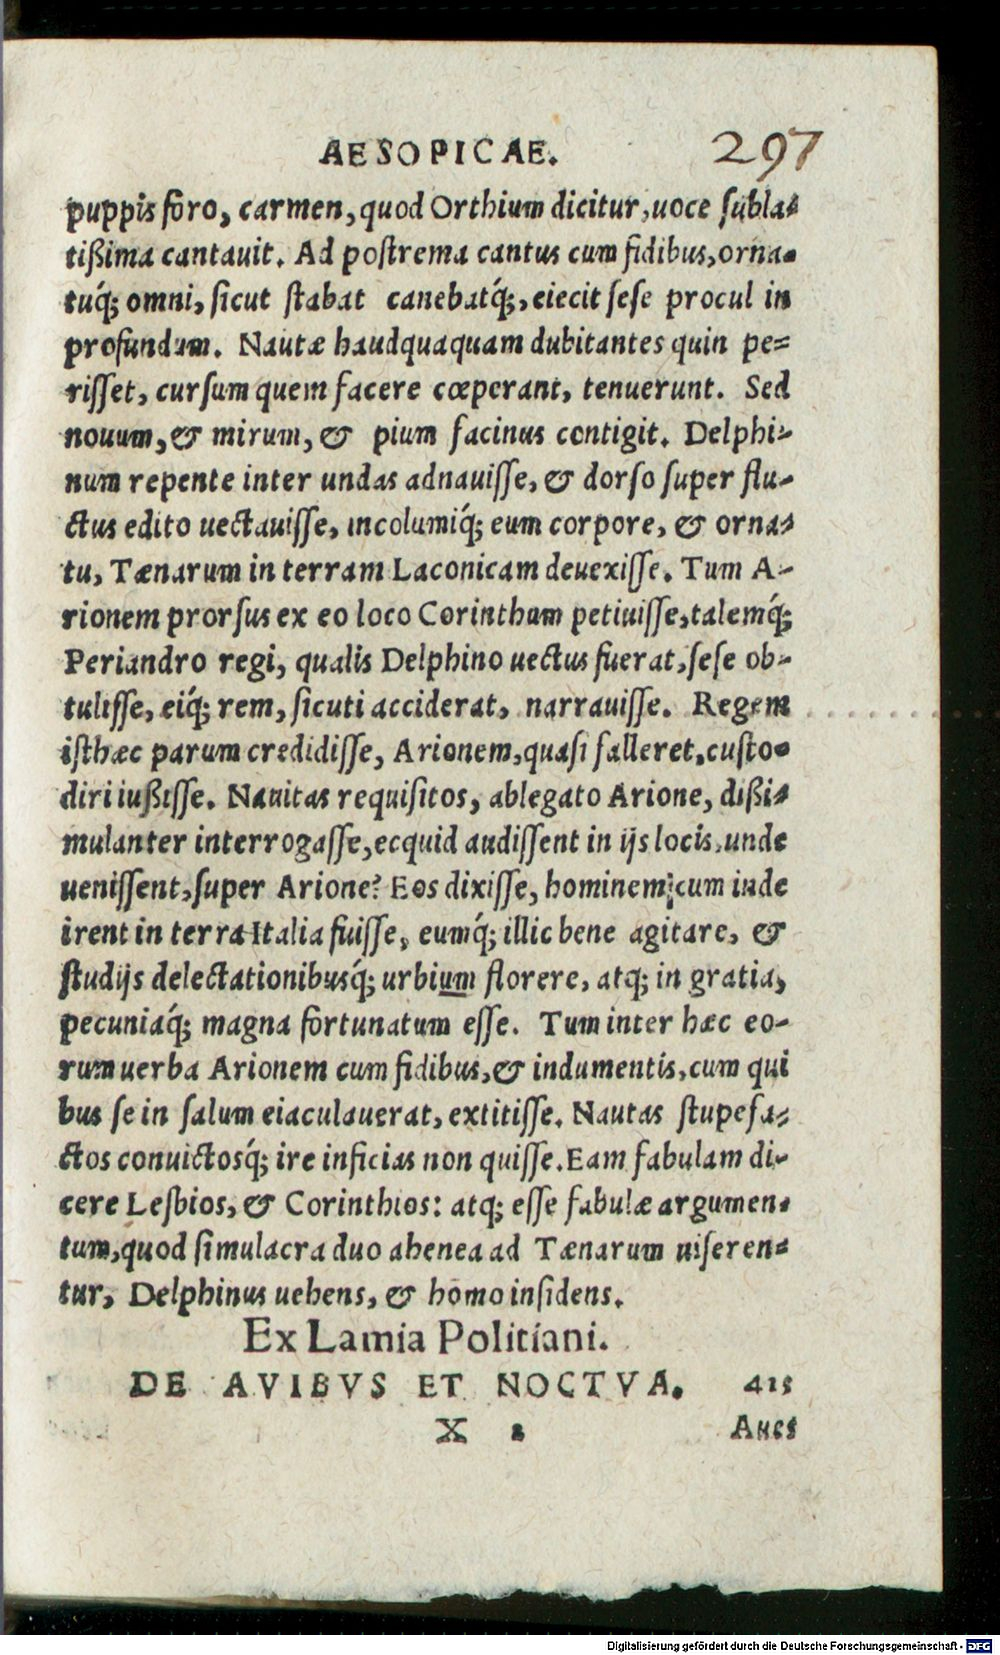 AESOPICAE. 297
puppis foro, carmen, quod Orthium dicitur, uoce subla-
tißima cantauit. Ad postrema cantus cum fidibus, orna-
tuq́; omni, sicut stabat canebatq́;, eiecit sese procul in
profundum. Nautæ haudquaquam dubitantes quin pe=
risset, cursum quem facere cœperant, tenuerunt. Sed
nouum, & mirum, & pium facinus contigit. Delphi-
num repente inter undas adnauisse, & dorso super flu-
ctus edito uectauisse, incolumiq́; eum corpore, & orna-
tu, Tænarum in terram Laconicam deuexisse. Tum A-
rionem prorsus ex eo loco Corinthum petiuisse, talemq́;
Periandro regi, qualis Delphino uectus fuerat, sese ob-
tulisse, eiq́; rem, sicuti acciderat, narrauisse. Regem
isthæc parum credidisse, Arionem, quasi falleret, custo-
diri iußisse. Nauitas requisitos, ablegato Arione, dißi-
mulanter interrogasse, ecquid audissent in ijs locis, unde
uenissent, super Arione? Eos dixisse, hominem, cum inde
irent in terra Italia fuisse, eumq́; illic bene agitare, &
studijs delectationibusq́; urbium florere, atq; in gratia,
pecuniaq́; magna fortunatum esse. Tum inter hæc eo-
rum uerba Arionem cum fidibus, & indumentis, cum qui
bus se in salum eiaculauerat, extitisse. Nautas stupefa-
ctos conuictosq́; ire inficias non quisse. Eam fabulam di-
cere Lesbios, & Corinthios: atq; esse fabulæ argumen-
tum, quod simulacra duo ahenea ad Tænarum uiseren-
tur, Delphinus uehens, & homo insidens.
Ex Lamia Politiani.
DE AVIBVS ET NOCTVA. 415
X 2 Aues
Digitalisierung gefördert durch die Deutsche Forschungsgemeinschaft - DFG